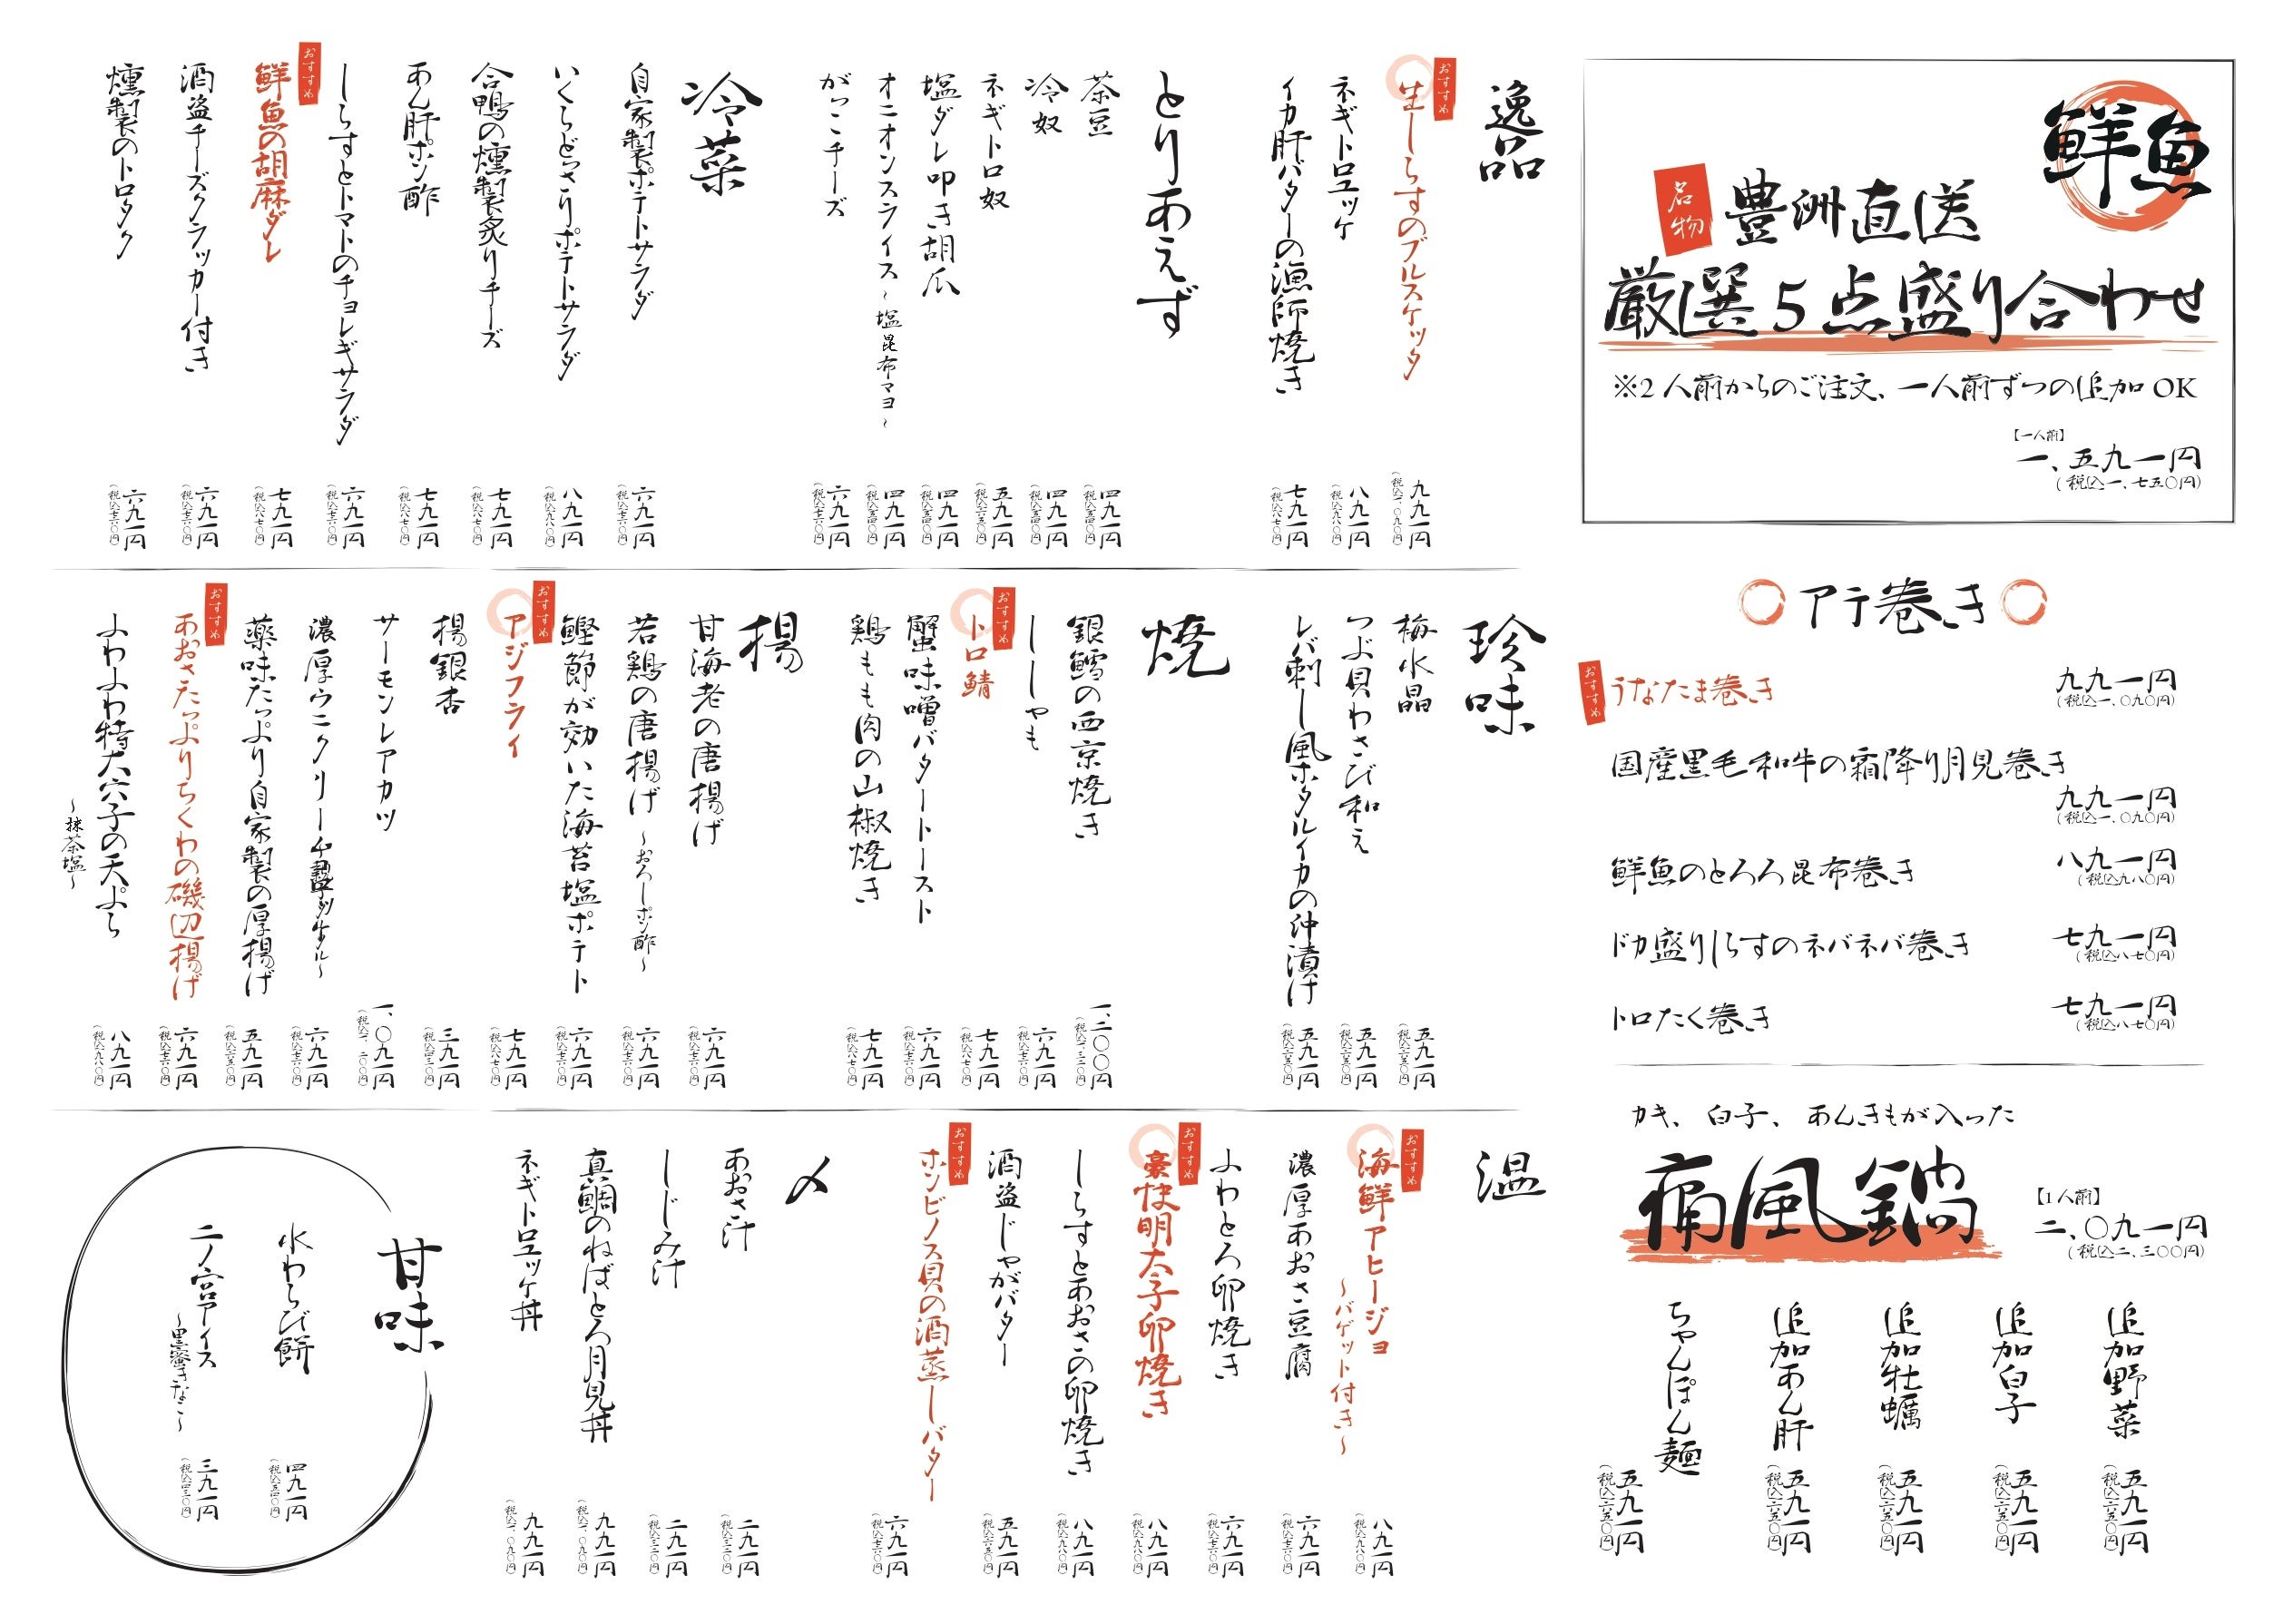 鮮魚
名物
豊洲直送
厳選5点盛り合わせ
※2人前からのご注文、一人前ずつの追加OK
【一人前】
一、五九一円
(税込一、七五〇円)
アテ巻き
おすすめ
うなたま巻き
九九一円
(税込一、〇九〇円)
国産黒毛和牛の霜降り月見巻き
九九一円
(税込一、〇九〇円)
鮮魚のとろろ昆布巻き
八九一円
(税込九八〇円)
ドカ盛りしらすのネバネバ巻き
七九一円
(税込八七〇円)
トロたく巻き
七九一円
(税込八七〇円)
カキ、白子、あんきもが入った
痛風鍋
【1人前】
二、〇九一円
(税込二、三〇〇円)
追加野菜
五九一円
(税込六五〇円)
追加白子
五九一円
(税込六五〇円)
追加牡蠣
五九一円
(税込六五〇円)
追加あん肝
五九一円
(税込六五〇円)
ちゃんぽん麺
五九一円
(税込六五〇円)
逸品
おすすめ
生しらすのブルスケッタ
九九一円
(税込一、〇九〇円)
ネギトロユッケ
八九一円
(税込九八〇円)
イカ肝バターの漁師焼き
七九一円
(税込八七〇円)
とりあえず
茶豆
四九一円
(税込五四〇円)
冷奴
四九一円
(税込五四〇円)
ネギトロ奴
五九一円
(税込六五〇円)
塩ダレ叩き胡瓜
四九一円
(税込五四〇円)
オニオンスライス~塩昆布マヨ~
四九一円
(税込五四〇円)
がっこチーズ
六九一円
(税込七六〇円)
冷菜
自家製ポテトサラダ
六九一円
(税込七六〇円)
いくらどっさりポテトサラダ
八九一円
(税込九八〇円)
合鴨の燻製炙りチーズ
七九一円
(税込八七〇円)
あん肝ポン酢
七九一円
(税込八七〇円)
しらすとトマトのチョレギサラダ
六九一円
(税込七六〇円)
おすすめ
鮮魚の胡麻ダレ
七九一円
(税込八七〇円)
酒盗チーズクラッカー付き
六九一円
(税込七六〇円)
燻製のトロタク
六九一円
(税込七六〇円)
珍味
梅水晶
五九一円
(税込六五〇円)
つぶ貝わさび和え
五九一円
(税込六五〇円)
レバ刺し風ホタルイカの沖漬け
五九一円
(税込六五〇円)
焼
銀鱈の西京焼き
一、二〇〇円
(税込一、三二〇円)
ししゃも
六九一円
(税込七六〇円)
おすすめ
トロ鯖
七九一円
(税込八七〇円)
蟹味噌バタートースト
六九一円
(税込七六〇円)
鶏もも肉の山椒焼き
七九一円
(税込八七〇円)
揚
甘海老の唐揚げ
六九一円
(税込七六〇円)
若鶏の唐揚げ~おろしポン酢~
六九一円
(税込七六〇円)
鰹節が効いた海苔塩ポテト
六九一円
(税込七六〇円)
おすすめ
アジフライ
七九一円
(税込八七〇円)
揚銀杏
三九一円
(税込四三〇円)
サーモンレアカツ
一、〇九一円
(税込一、二〇〇円)
濃厚ウニクリーム
六九一円
(税込七六〇円)
薬味たっぷり自家製の厚揚げ
五九一円
(税込六五〇円)
おすすめ
あおさたっぷりちくわの磯辺揚げ
六九一円
(税込七六〇円)
ふわふわ特大穴子の天ぷら
~抹茶塩~
八九一円
(税込九八〇円)
温
おすすめ
海鮮アヒージョ
~バゲット付き~
八九一円
(税込九八〇円)
濃厚あおさ豆腐
六九一円
(税込七六〇円)
ふわとろ卵焼き
六九一円
(税込七六〇円)
おすすめ
豪快明太子卵焼き
八九一円
(税込九八〇円)
しらすとあおさの卵焼き
八九一円
(税込九八〇円)
酒盗じゃがバター
五九一円
(税込六五〇円)
おすすめ
ホンビノス貝の酒蒸しバター
六九一円
(税込七六〇円)
〆
あおさ汁
二九一円
(税込三二〇円)
しじみ汁
二九一円
(税込三二〇円)
真鯛のねばとろ月見丼
九九一円
(税込一、〇九〇円)
ネギトロユッケ丼
九九一円
(税込一、〇九〇円)
甘味
水わらび餅
四九一円
(税込五四〇円)
二ノ宮アイス
~黒蜜きなこ~
三九一円
(税込四三〇円)